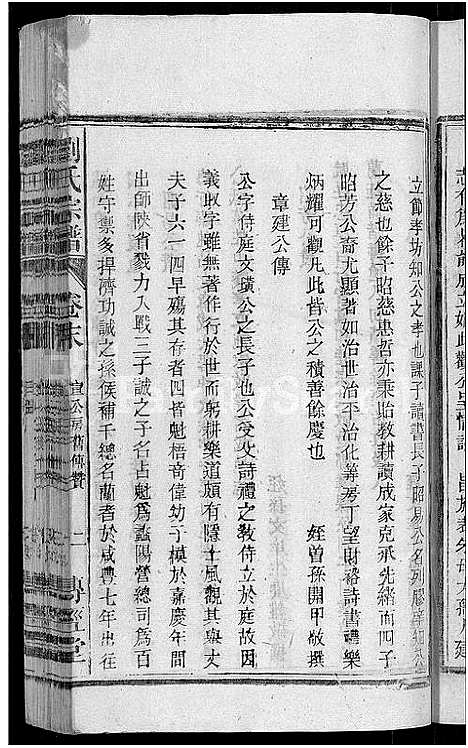 立節孝坊知公之孝也課子讀書長子昭易公名列膠庠知公
之慈也餘子昭慈惠哲亦秉貽教耕讀成家克承先緒而四子
昭芳公裔尤顯著如治世治平治化等房丁望財裕詩書禮樂
炳耀可觀凡此皆公之積善餘慶也　姪曾孫開甲敬撰
章建公傳
公字侍庭文璜公之長子也公受父詩禮之敎侍立於庭故因
義取字雖無著作行於世而躬耕樂道頗有隱士風觀其與丈
夫子六一四早殤其存者四皆魁梧奇偉幼子模於嘉慶年間
出師陝省戮力入戰三子誠之子名占魁爲蠡陽營總司爲百
姓守禦多捍濟功誠之孫候補千總名蘭者於咸豐七年出征
劉氏宗譜
卷末
宣公房舊傳贊
二